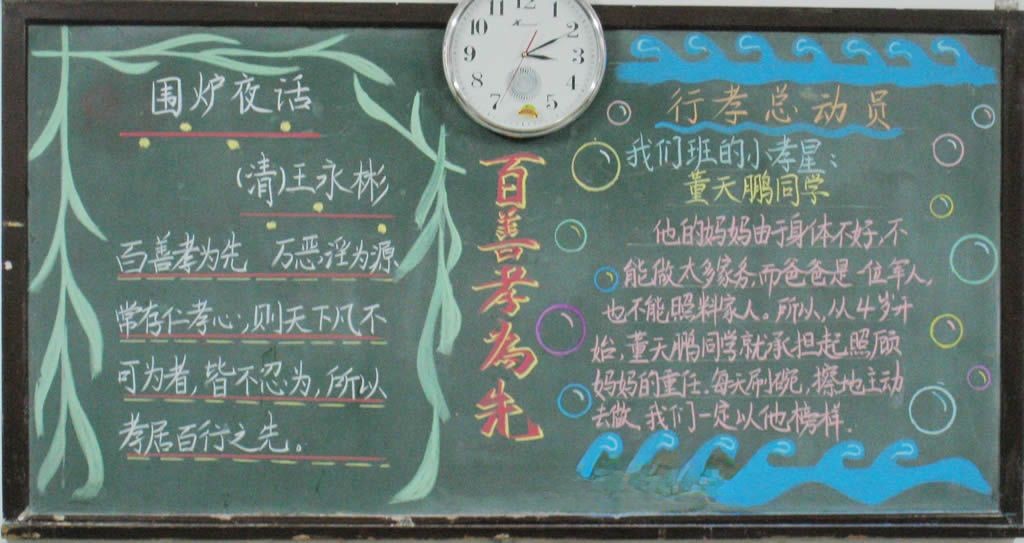 围炉夜话
(清)王永彬
百善孝为先 万恶淫为源
常存仁孝心,则天下凡不
可为者,皆不忍为,所以
孝居百行之先。
百善孝為先
12
11
10
9
8
7
5
4
3
2
行孝总动员
我们班的小孝星:
董天鹏同学
他的妈妈由于身体不好,不
能做太多家务,而爸爸是一位军人,
也不能照料家人。所以,从4岁开
始,董天鹏同学就承担起照顾
妈妈的重任.每天刷碗,擦地主动
去做.我们一定以他榜样.